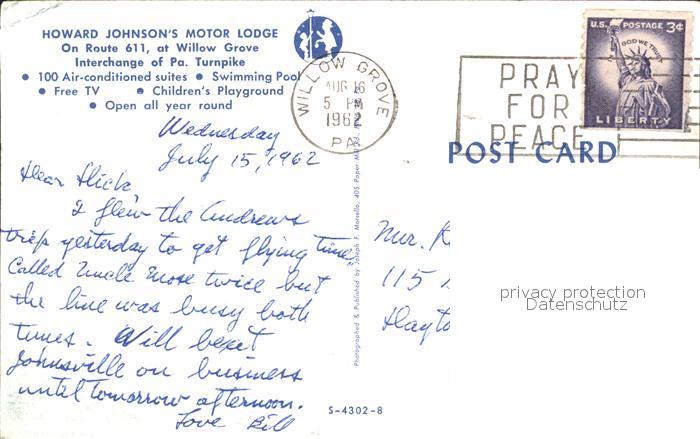 HOWARD JOHNSON'S MOTOR LODGE
On Route 611, at Willow Grove
Interchange of Pa. Turnpike
• 100 Air-conditioned suites • Swimming Pool
• Free TV • Children's Playground
• Open all year round
WILLOW GROVE
AUG 16
5 PM
1962
PA
PRAY
FOR
PEACE
U.S. POSTAGE 3¢
IN GOD WE TRUST
LIBERTY
POST CARD
Wednesday
July 15, 1962
Dear Dick
I flew the Andrews
trip yesterday to get flying time.
Called Uncle Mose twice but
the line was busy both
times. Will be at
Johnsville on business
until tomorrow afternoon.
Love Bill
Photographed & Published by Joseph F. Morsello, 405 Paper Mill Rd.
Mr. R
115
Dayto
privacy protection
Datenschutz
S-4302-8